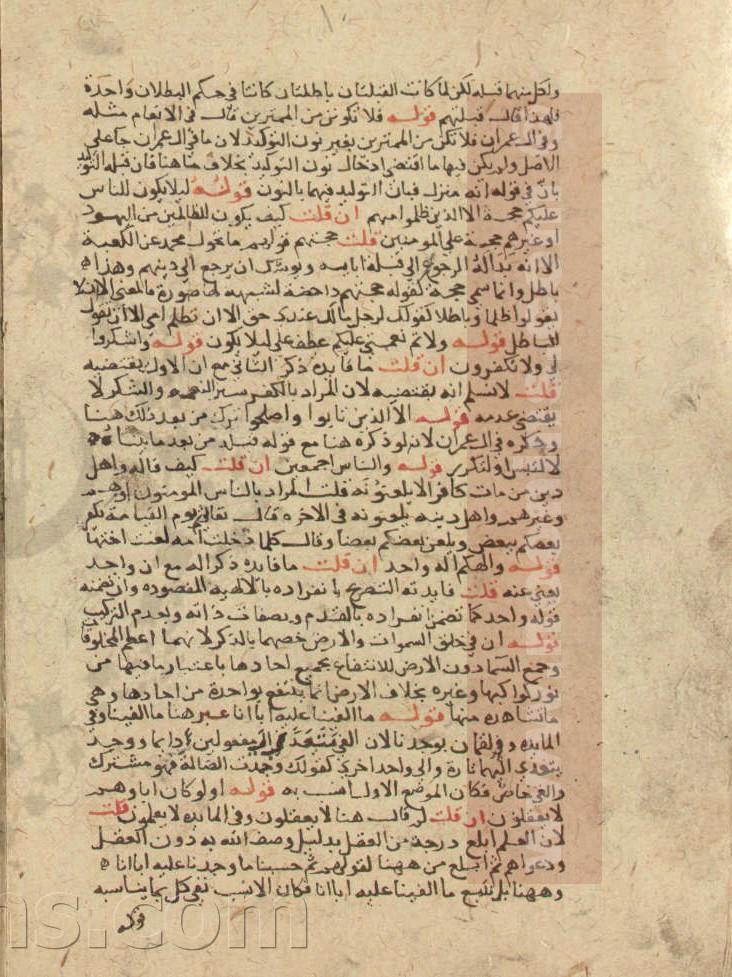 ولكل منهما قبلة لكن لما كانت القبلتان باطلتان كانتا في حكم البطلان واحدة
فلهذا قال قبلتهم قوله فلا تكونن من الممترين قال في الانعام مثله
وفي ال عمران فلا تكن من الممترين بغير نون التوكيد لان ما في ال عمران جا على
الاصل ولم يكن فيها ما اقتضى ادخال نون التوكيد بخلاف ما هنا فان قبله التوكيد
بان في قوله انه منزل فبان التوكيد فيهما بالنون قوله ليلا يكون للناس
عليكم حجة الا الذين ظلموا منهم ان قلت كيف يكون للظالمين من اليهود
او غيرهم حجة على المومنين قلت حجتهم قولهم ما تحول محمد عن الكعبة
الا انه بدا له الرجوع الى قبلة ابايه ويوشك ان يرجع الى دينهم وهذا
باطل وانما سمي حجة لقوله حجتهم داحضة لشبهه لها صورة فالمعنى الا ان
يقولوا ظلما وباطلا كقولك لرجل مالك عندي حق الا ان تظلم اي الا ان تقول
الباطل قوله ولاتم نعمتي عليكم عطف على ليلا يكون قوله واشكروا
لي ولا تكفرون ان قلت ما فايدة ذكر الثاني مع ان الاول يقتضيه
قلت لا نسلم انه يقتضيه لان المراد بالكفر ستر النعمة والشكر لا
يقتضي عدمه قوله الا الذين تابوا واصلحوا ترك من بعد ذلك هنا
وذكره في ال عمران لانه لو ذكره هنا مع قوله قبله من بعد ما بيناه
لالتبس او لتكرر قوله والناس اجمعين ان قلت كيف قاله واهل
دين من مات كافرا لا يلعنونه قلت المراد بالناس المومنون او هم
وغيرهم واهل دينه يلعنونه في الاخرة قال تعالى يوم القيامة يكفر
بعضكم ببعض ويلعن بعضكم بعضا وقال كلما دخلت امة لعنت اختها
قوله والهكم اله واحد ان قلت ما فايدة ذكر اله مع ان واحد
يغني عنه قلت فايدته التصريح بانفراده بالالهية المقصودة وان تضمنه
قوله واحد كما تضمن انفراده بالقدم وبصفات ذاته وبعدم التركيب
قوله ان في خلق السموات والارض خصهما بالذكر لانهما اعظم المخلوقات
وجمع السما دون الارض للانتفاع بجميع احادها باعتبار ما فيها من
نور كواكبها وغيره بخلاف الارض انما ينتفع بواحدة من احادها وهي
ما نشاهده منها قوله ما الفينا عليه ابانا عبر هنا ما الفينا وفي
المايدة وفي لقمان بوجدنا لان الفى يتعدى الى مفعولين دايما ووجد
يتعدى اليهما تارة والى واحد اخرى كقولك وجدت الضالة فهو مشترك
والفى خاص فكان الموضع الاول انسب به قوله اولو كان اباوهم
لا يعقلون ان قلت لم قال هنا لا يعقلون وفي المايدة لا يعلمون قلت
لان العلم ابلغ درجة من العقل بدليل وصف الله به دون العقل
ودعواهم ثم ابلغ من ههنا لقولهم ثم حسبنا ما وجدنا عليه ابانا
وههنا بل نتبع ما الفينا عليه ابانا فكان الانسب نفي كل بما يناسبه
قوله
ns.com